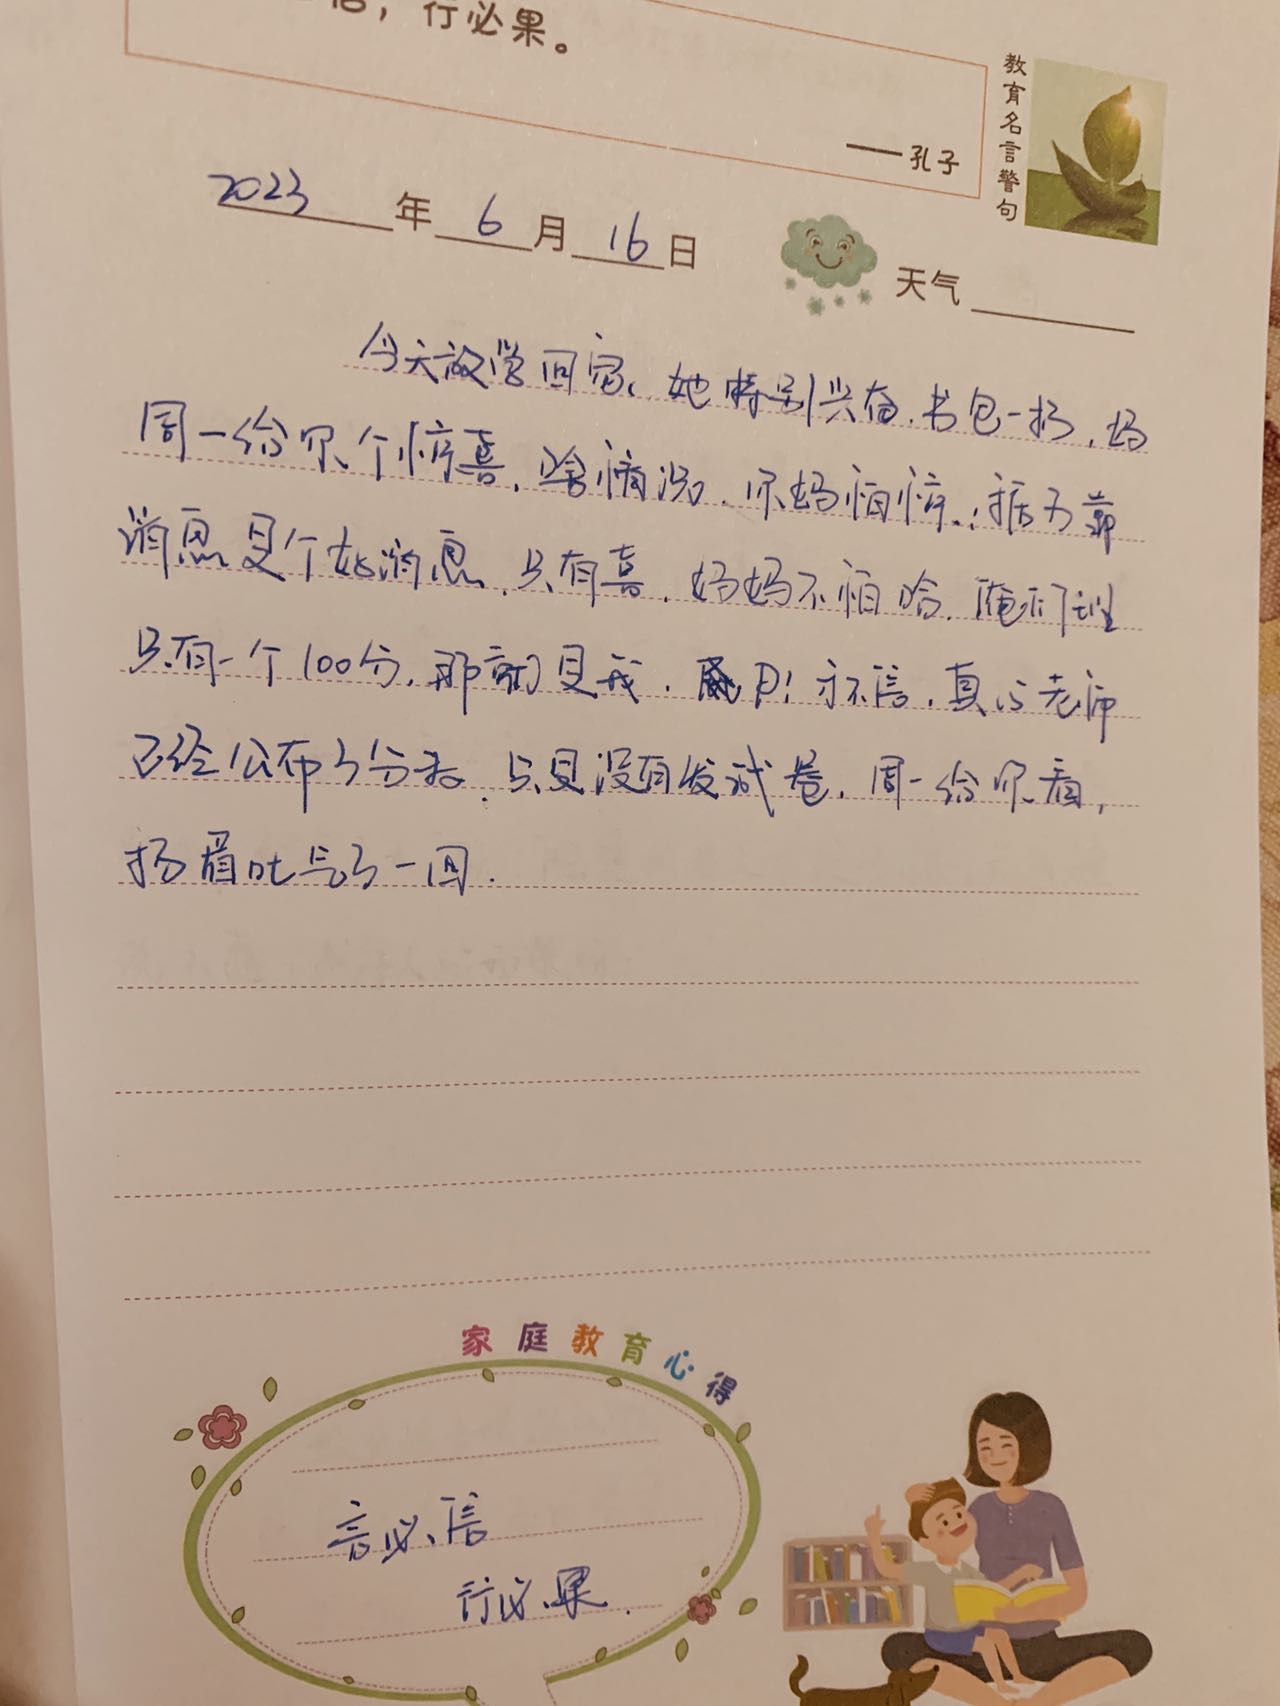 信，行必果。
——孔子
教育名言警句
2023年6月16日
天气
今天放学回家，她特别兴奋，书包一扔，妈
周一给你个惊喜，啥情况，你妈怕惊，据可靠
消息是个好消息，只有喜，妈妈不怕哈，俺们班
只有一个100分，那就是我，威严！才不信，真的老师
已经公布了分数，只是没有发试卷，周一给你看，
扬眉吐气了一回.
家庭教育心得
言必信
行必果.